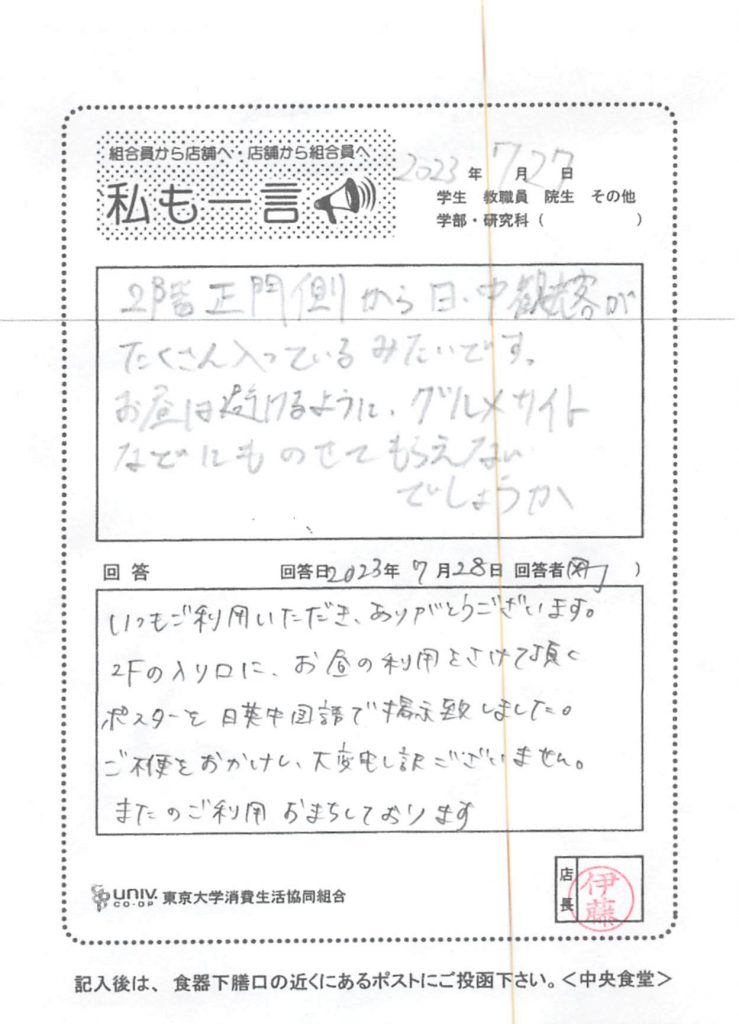 組合員から店舗へ・店舗から組合員へ
私も一言
2023年 7月27日
学生 教職員 院生 その他
学部・研究科（ ）
2階正門側から日・中観光客が
たくさん入っているみたいです。
お昼は避けるように、グルメサイト
などにものせてもらえない
でしょうか
回答 回答日2023年 7月28日 回答者( )
いつもご利用いただき、ありがとうございます。
2Fの入り口に、お昼の利用をさけて頂く
ポスターを日英中国語で掲示致しました。
ご不便をおかけし、大変申し訳ございません。
またのご利用おまちしております
UNIV.
CO-OP
東京大学消費生活協同組合
店長
伊藤
記入後は、食器下膳口の近くにあるポストにご投函下さい。＜中央食堂＞